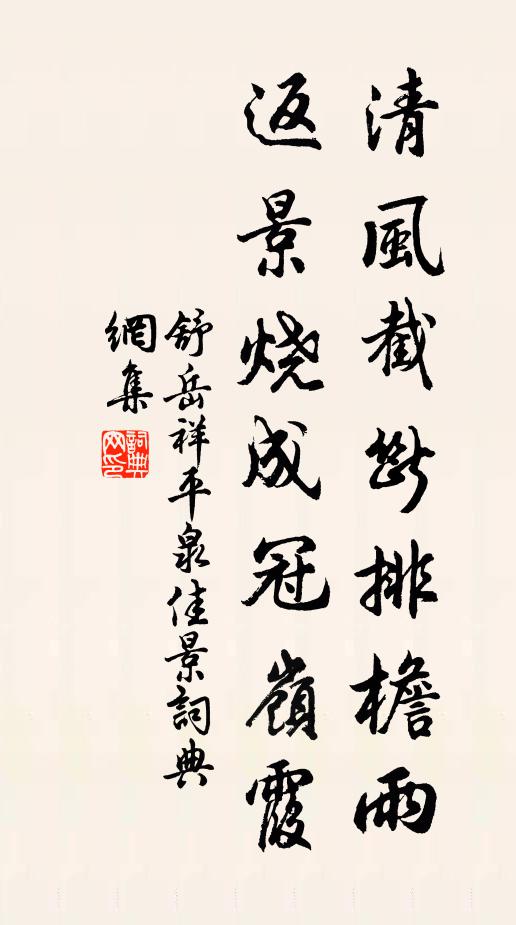 清風截斷排檐雨
返景燒成冠嶺霞
舒岳祥平泉佳景詞典
網集
詞典網印